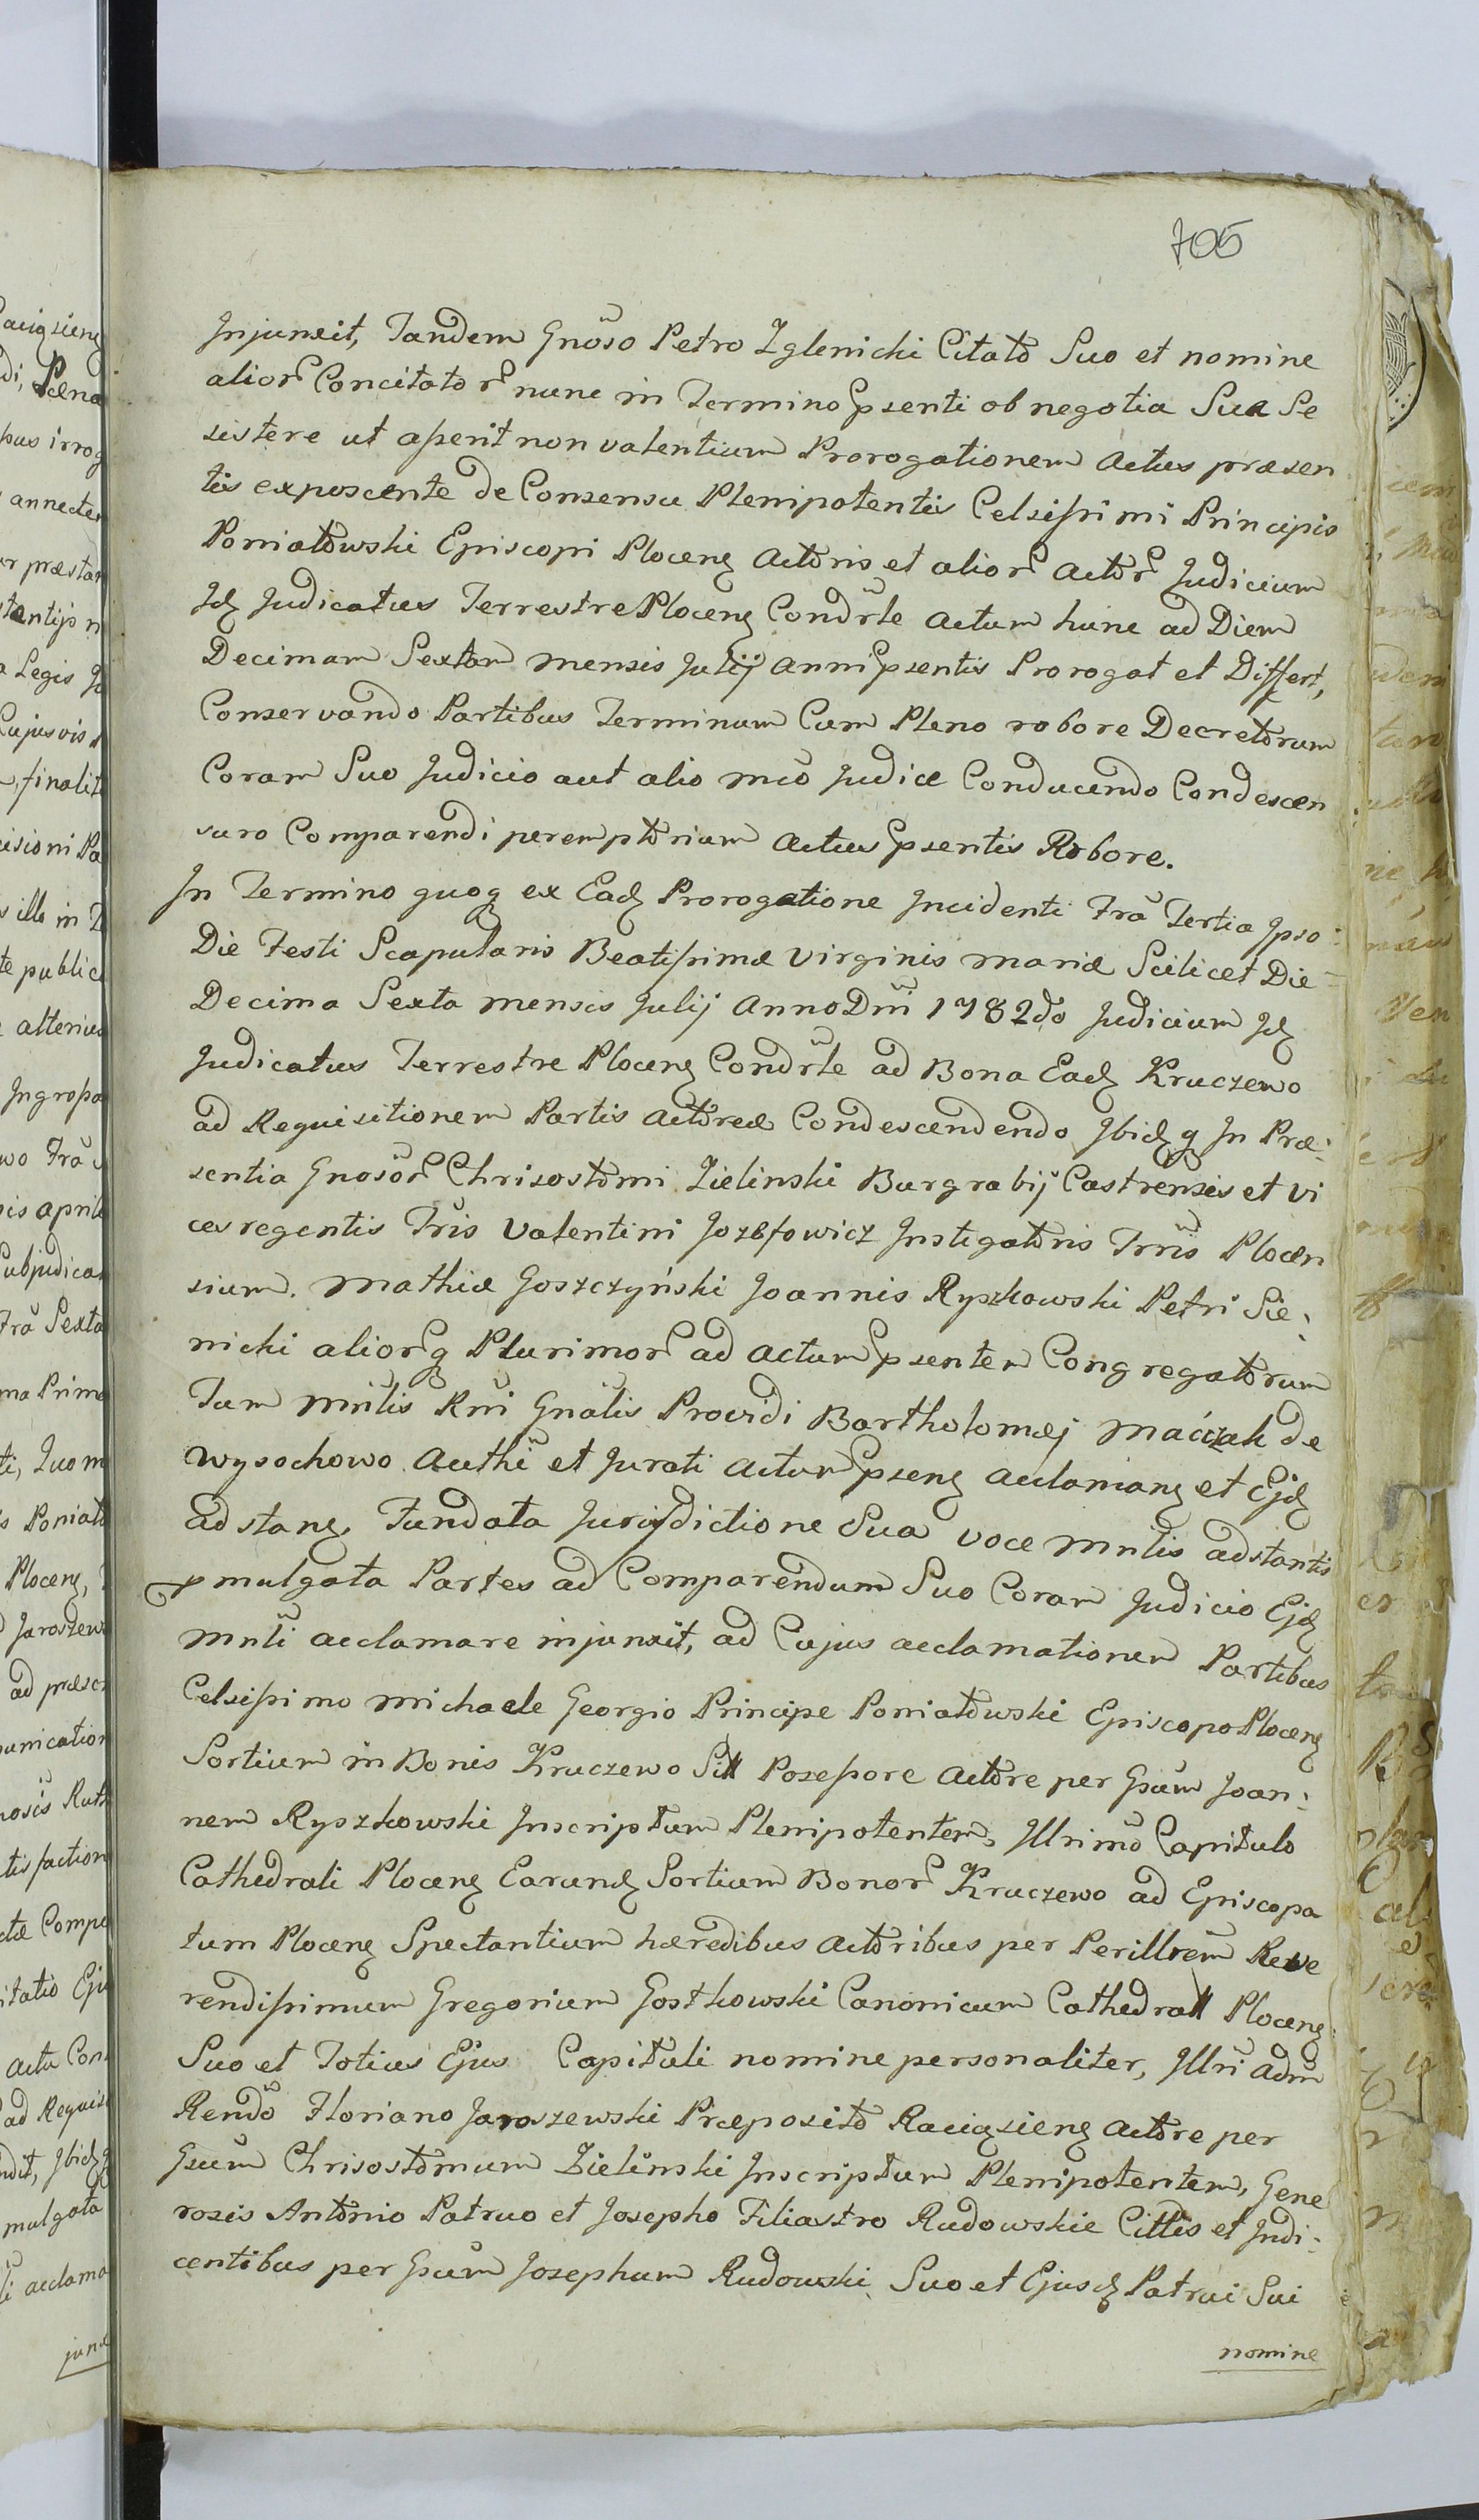 705
Injunxit, Tandem Gnõso Petro Zglenicki Citato Suo et nomine
alior Concitator nunc in Termino psenti ob negotia Sua Se
sistere ut aßerit non valentium Prorogationem actus præsen
tis exposcente de Consensu Plenipotentis Celsißimi Principis
Poniatowski Episcopi Plocen actoris et alior actor Judicium
Id Judicatus Terrestre Plocen Condrle actum hunc ad Diem
Decimam Sextam mensis Julij anni psentis Prorogat et Differt,
Conservando Partibus Terminum Cum Pleno robore Decretorum
Coram Suo Judicio aut alio mcõ Judice Conducendo Condescen
suro Comparendi peremptorium actus psentis Robore.
In Termino quoq ex Ead Prorogatione Incidenti Frã Tertia Ipso
Die Festi Scapularis Beatißimæ Virginis mariæ Scilicet Die
Decima Sexta mensis Julij Anno Dnĩ 1782do Judicium Id
Judicatus Terrestre Plocen Condrle ad Bona Ead Kruczewo
ad Requisitionem Partis actoreæ Condescendendo Ibid q In Præ:
sentia Gnosor Chrisostomi Zielinski Burgrabij Castrensis et vi
ces regentis Tris Valentini Jozefowicz Instigatoris Trris Plocen
sium. Mathiæ Goszczyński Joannis Ryszkowski Petri Sie:
nicki alior q Plurimor ad actum psentem Congregatorum
Tum mnlis Rnĩ Gnalis Providi Bartholomæj Maćizak de
Wysochowo Authĩ et Jurati actum psen acclaman et Ejd
adstan. Fundata Jurisdictione Sua voce mnlis adstantis
pmulgata Partes ad Comparendum Suo Coram Judicio Ejd
mnli acclamare injunxit, ad Cujus acclamationem Partibus
Celsißimo Michaele Georgio Principe Poniatowski Episcopo Plocen
Sortium in Bonis Kruczewo Sitt Poseßore actore per Gsum Joan:
nem Ryszkowski Inscriptum Plenipotentem, Illrimo Capitulo
Cathedrali Plocen Earund Sortium Bonor Kruczewo ad Episcopa
tum Plocen Spectantium hæredibus actoribus per Perillrem Reve
rendißimum Gregorium Gostkowski Canonicum Cathedrall Plocen
Suo et Totius Ejus Capituli nomine personaliter, Illri adm
Rendo Floriano Jaroszewski Præposito Raciązien actore per
Gsum Chrisostomum Zielinski Inscriptum Plenipotentem, Gene
rosis Antonio Patruo et Josepho Filiastro Rudowskie Cittis et Indi:
centibus per Gsum Josephum Rudowski Suo et Ejusd Patrui Sui
nomine